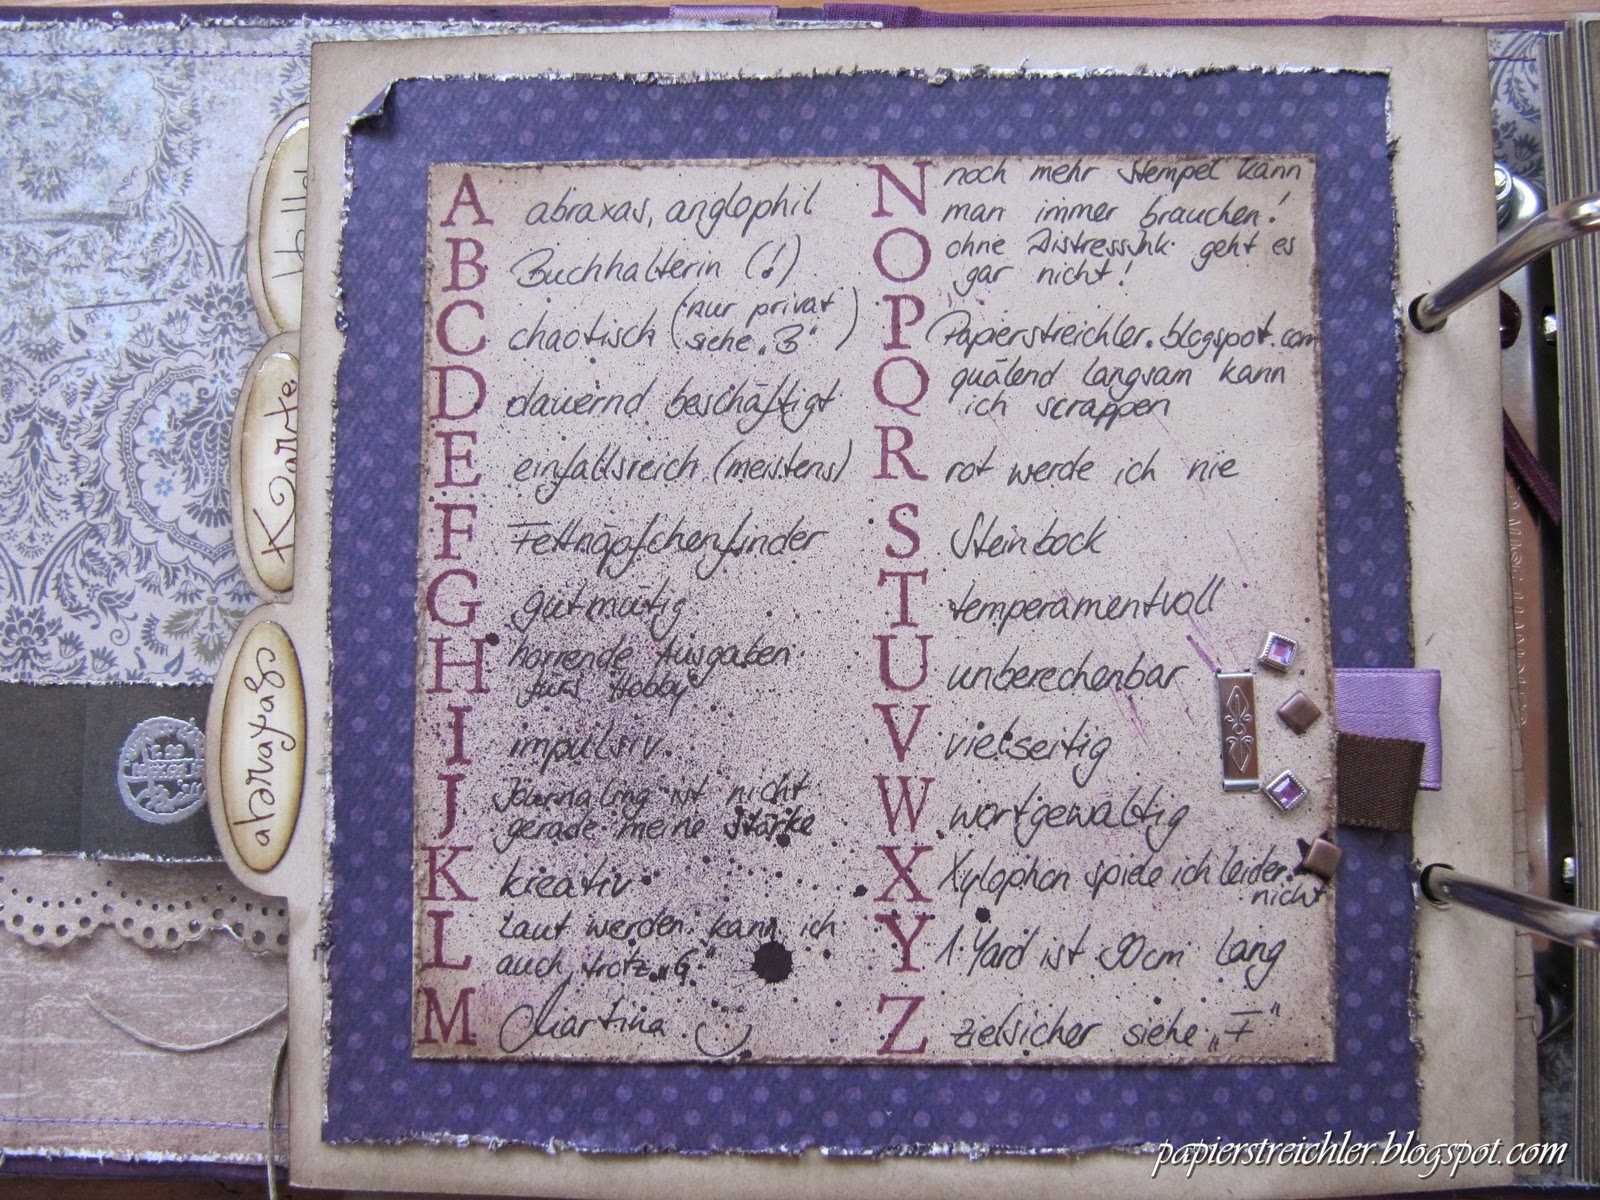 A abraxas, anglophil
B Buchhalterin (!)
C chaotisch (nur privat
siehe „B“)
D dauernd beschäftigt
E einfallsreich (meistens)
F Fettnäpfchenfinder
G gutmütig
H horrende Ausgaben
fürs Hobby
I impulsiv
J Journaling ist nicht
gerade meine Stärke
K kreativ
L Laut werden kann ich
auch, trotz „G“
M Martina
N noch mehr Stempel kann
man immer brauchen!
O ohne DistressInk geht es
gar nicht!
P Papierstreichler.blogspot.com
Q quälend langsam kann
ich scrappen
R rot werde ich nie
S Steinbock
T temperamentvoll
U unberechenbar
V vielseitig
W wortgewaltig
X Xylophon spiele ich leider
nicht
Y 1 Yard ist 90cm lang
Z zielsicher siehe „F“
Karte
abraxas
papierstreichler.blogspot.com